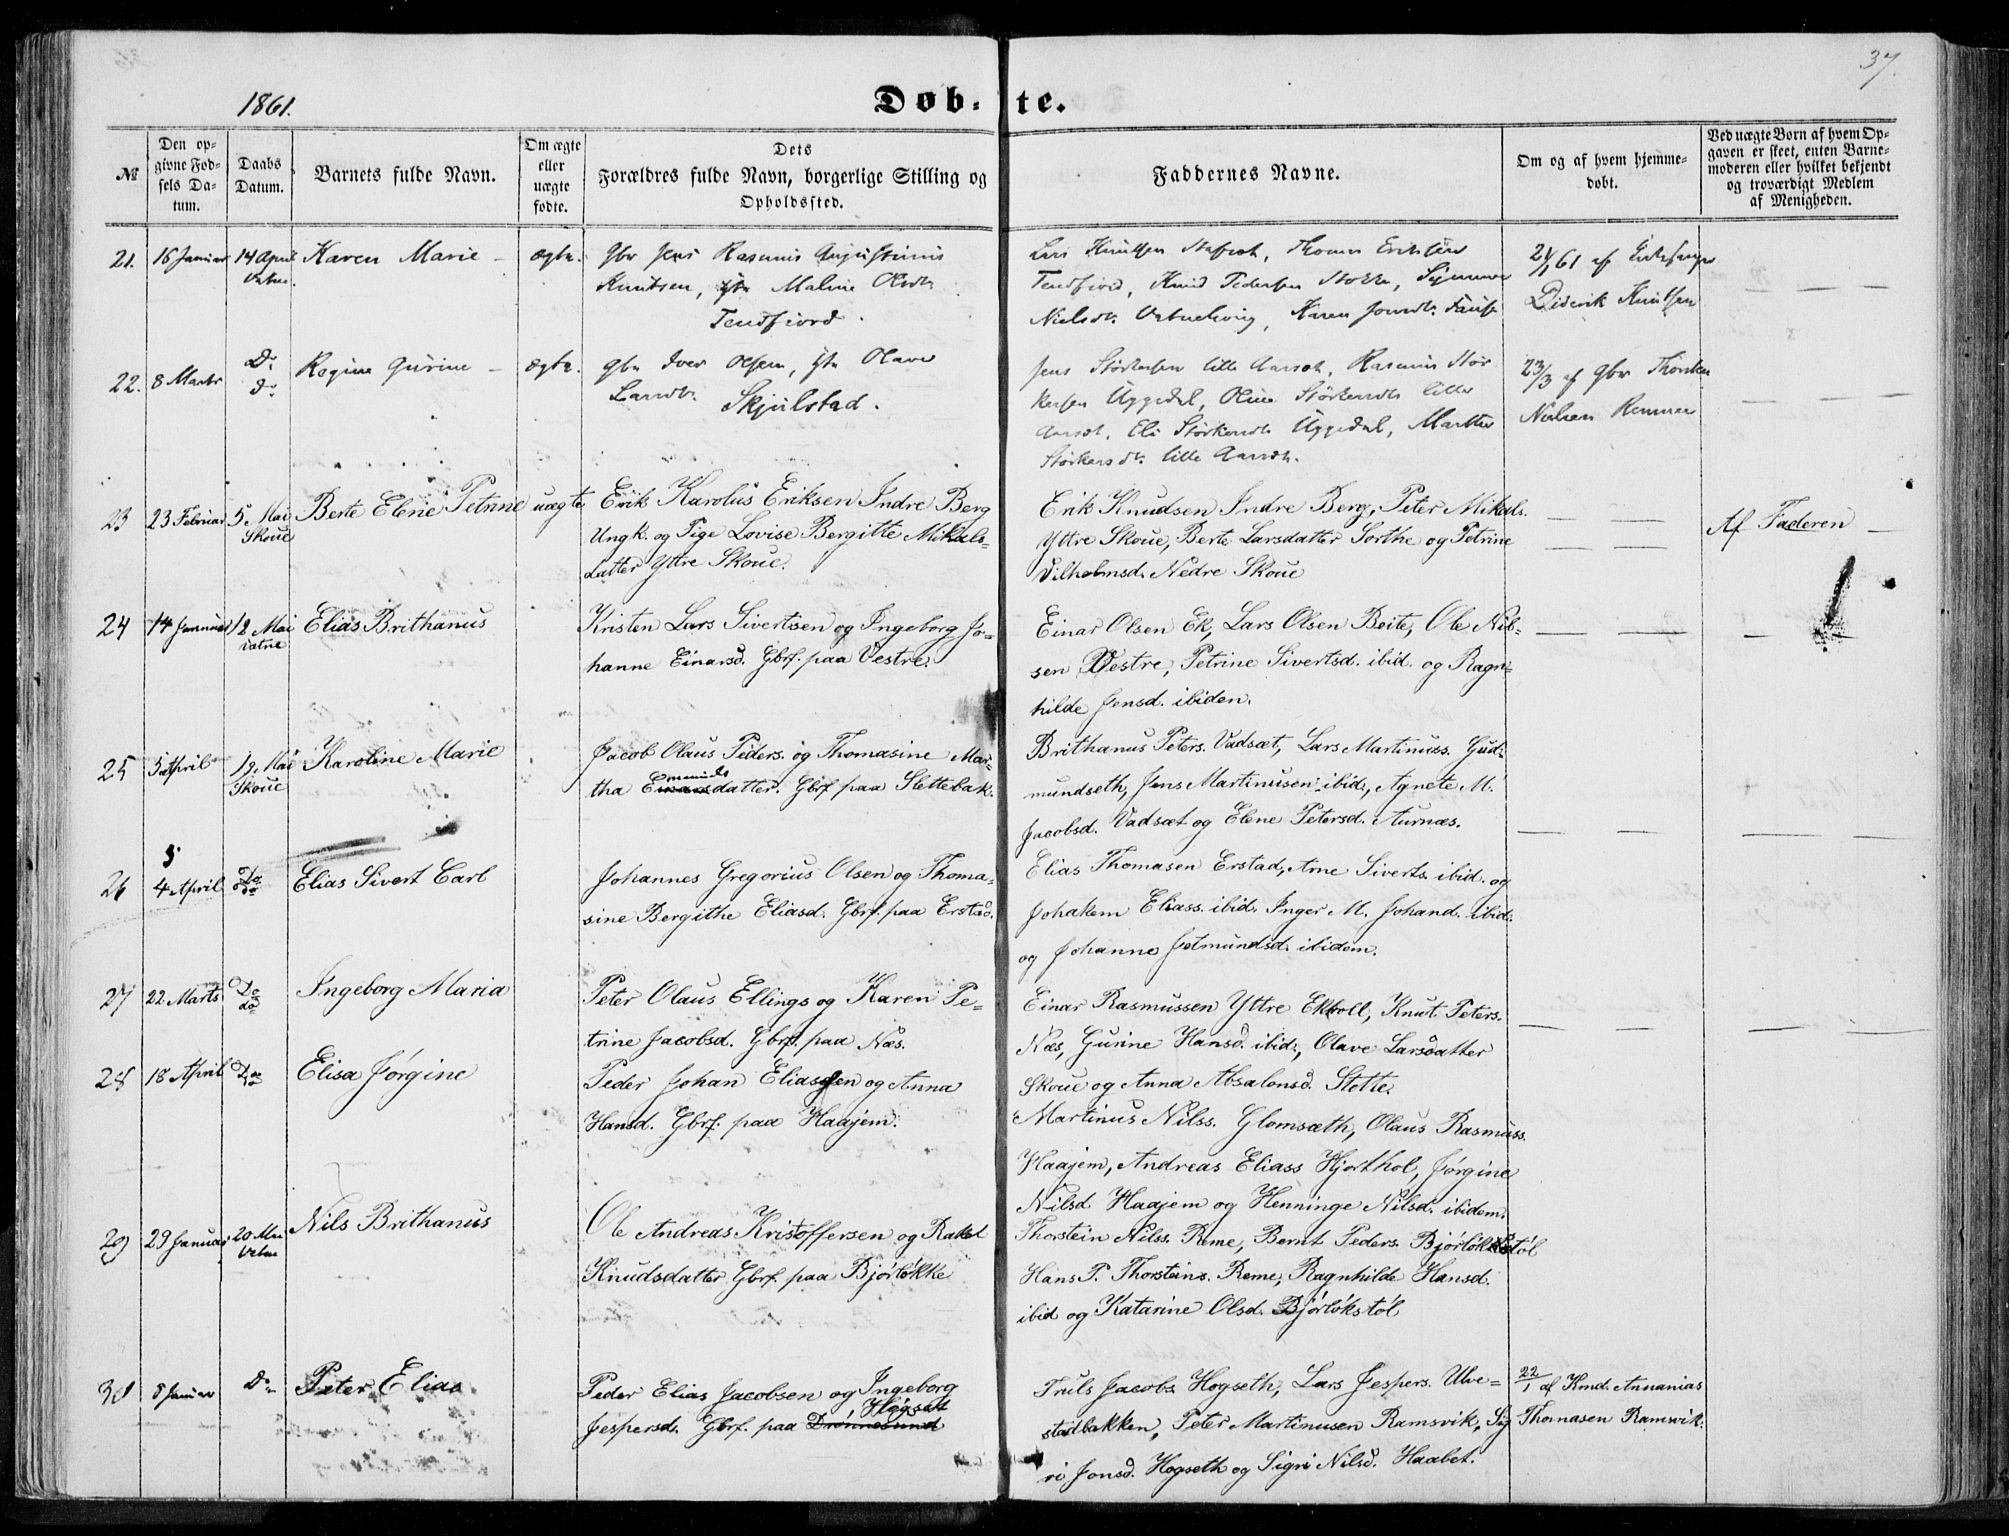 37.
1861.
Døb-te.
№
Den opgivne Fødsels Datum.
Daabs Datum.
Barnets fulde Navn.
Om ægte eller uægte fødte.
Dets Forældres fulde Navn, borgerlige Stilling og Opholdssted.
Faddernes Navne.
Om og af hvem hjemmedøbt.
Ved uægte Børn af hvem Opgaven er skeet, enten Barnemoderen eller hvilket bekjendt og troværdigt Medlem af Menigheden.
21. 16 Januar 14 April Vatne. Karen Marie – ægte.
Gbr Jens Rasmus Augustinus
Knutsen, Malene Olsdtr
Tendfjord.
Lars Knutsen, Thomas Eriksen
Tendfjord, Knud Pedersen Stokke,
Nielsdr. Vatnehvig, Karen Jonsdr.
24/1 61 af
Diderik Knutsen
22. 8 Marts Do do Regine Gurine – ægte.
Gbr Iver Olsen, Olave
Larsdr. Skjulstad.
Jens Størkersen lille Aarset, Rasmus Stør
kersen Uggedal, Oline Størkersdr lille
Aarset, Eli Størkersdr Uggedal, Marthe
Størkersdr. lille Aarset.
23/3 af Gbr
Nielsen
23 23 Februar 5 Mai Skoue Berte Elene Petrine uægte
Erik Karolus Eriksen Indre Berg
Ungk. og Pige Lovise Bergitte Mikals-
datter Yttre Skoue.
Erik Knudsen Indre Berg, Peter Mikals.
Yttre Skoue, Berte Larsdatter Sorthe og Petrine
Vilhelmsd. Nedre Skoue
Af Faderen
24 14 Januar 12 Mai Vatne Elias Brithanus
Kristen Lars Sivertsen og Ingeborg Jo-
hanne Einarsd. Gbrf. paa Vestre.
Einar Olsen Ek, Lars Olsen Beite, Ole Nil-
sen Vestre, Petrine Sivertsd. ibid. og Ragn-
hilde Jensd. ibiden.
25 3 April 19 Mai Skoue Karoline Marie
Jacob Olaus Peders. og Thomasine Mar-
tha Emundsdatter. Gbrf paa Slettebak.
Brithanus Peters. Vadsæt, Lars Martinuss. Gud-
mundseth, Jens Martinusen ibid., Agnete M.
Jacobsd. Vadsæt og Elene Petersd. Aurnæs.
5
26 4 April Do do Elias Sivert Carl
Johannes Gregorius Olsen og Thoma-
sine Bergithe Eliasd. Gbrf. paa Erstad.
Elias Thomasen Erstad, Arne Siverts. ibid. og
Johakem Eliass. ibid. Inger M. Johand. ibid.
og Johanne Jetmundsd. ibidem.
27 22 Marts Do do Ingeborg Maria
Peter Olaus Ellings og Karen Pe-
trine Jacobsd. Gbrf. paa Næs.
Einar Rasmussen Yttre Ekroll, Knut Peters.
Næs, Gurine Hansd. ibid., Olave Larsdatter
Skoue og Anna Absalonsd. Slotte.
28 18 April Do Elisa Jørgine
Peder Johan Eliassen og Anna
Hansd. Gbrf. paa Haajem.
Martinus Nilss. Glomsæth, Olaus Rasmuss.
Haajem, Andreas Eliass Hjorthol, Jørgine
Nilsd. Haajem og Henninge Nilsd. ibidem.
29 29 Januar 20 Mai Vatne Nils Brithanus
Ole Andreas Kristoffersen og Rakel
Knudsdatter Gbrf. paa Bjørløkke
Thorstein Nilss. Reme, Bernt Peders. Bjørløkstøl
Hans P. Thorsteins. Reme, Ragnhilde Hansd.
ibid og Katarine Olsd. Bjørløkstøl
30 8 Januar Do Peter Elias
Peder Elias Jacobsen og Ingeborg
Jespersd. Gbrf. paa Drønnesund Høgset
Truls Jacobs. Hogseth, Lars Jespers. Ulve-
stadbakken, Peter Martinusen Ramsvik, Sig
ri Jonsd. Hogseth og Sigri Nilsd. Haabet.
22/1 af Kmd. Annanias
Thomasen Ramsvik.